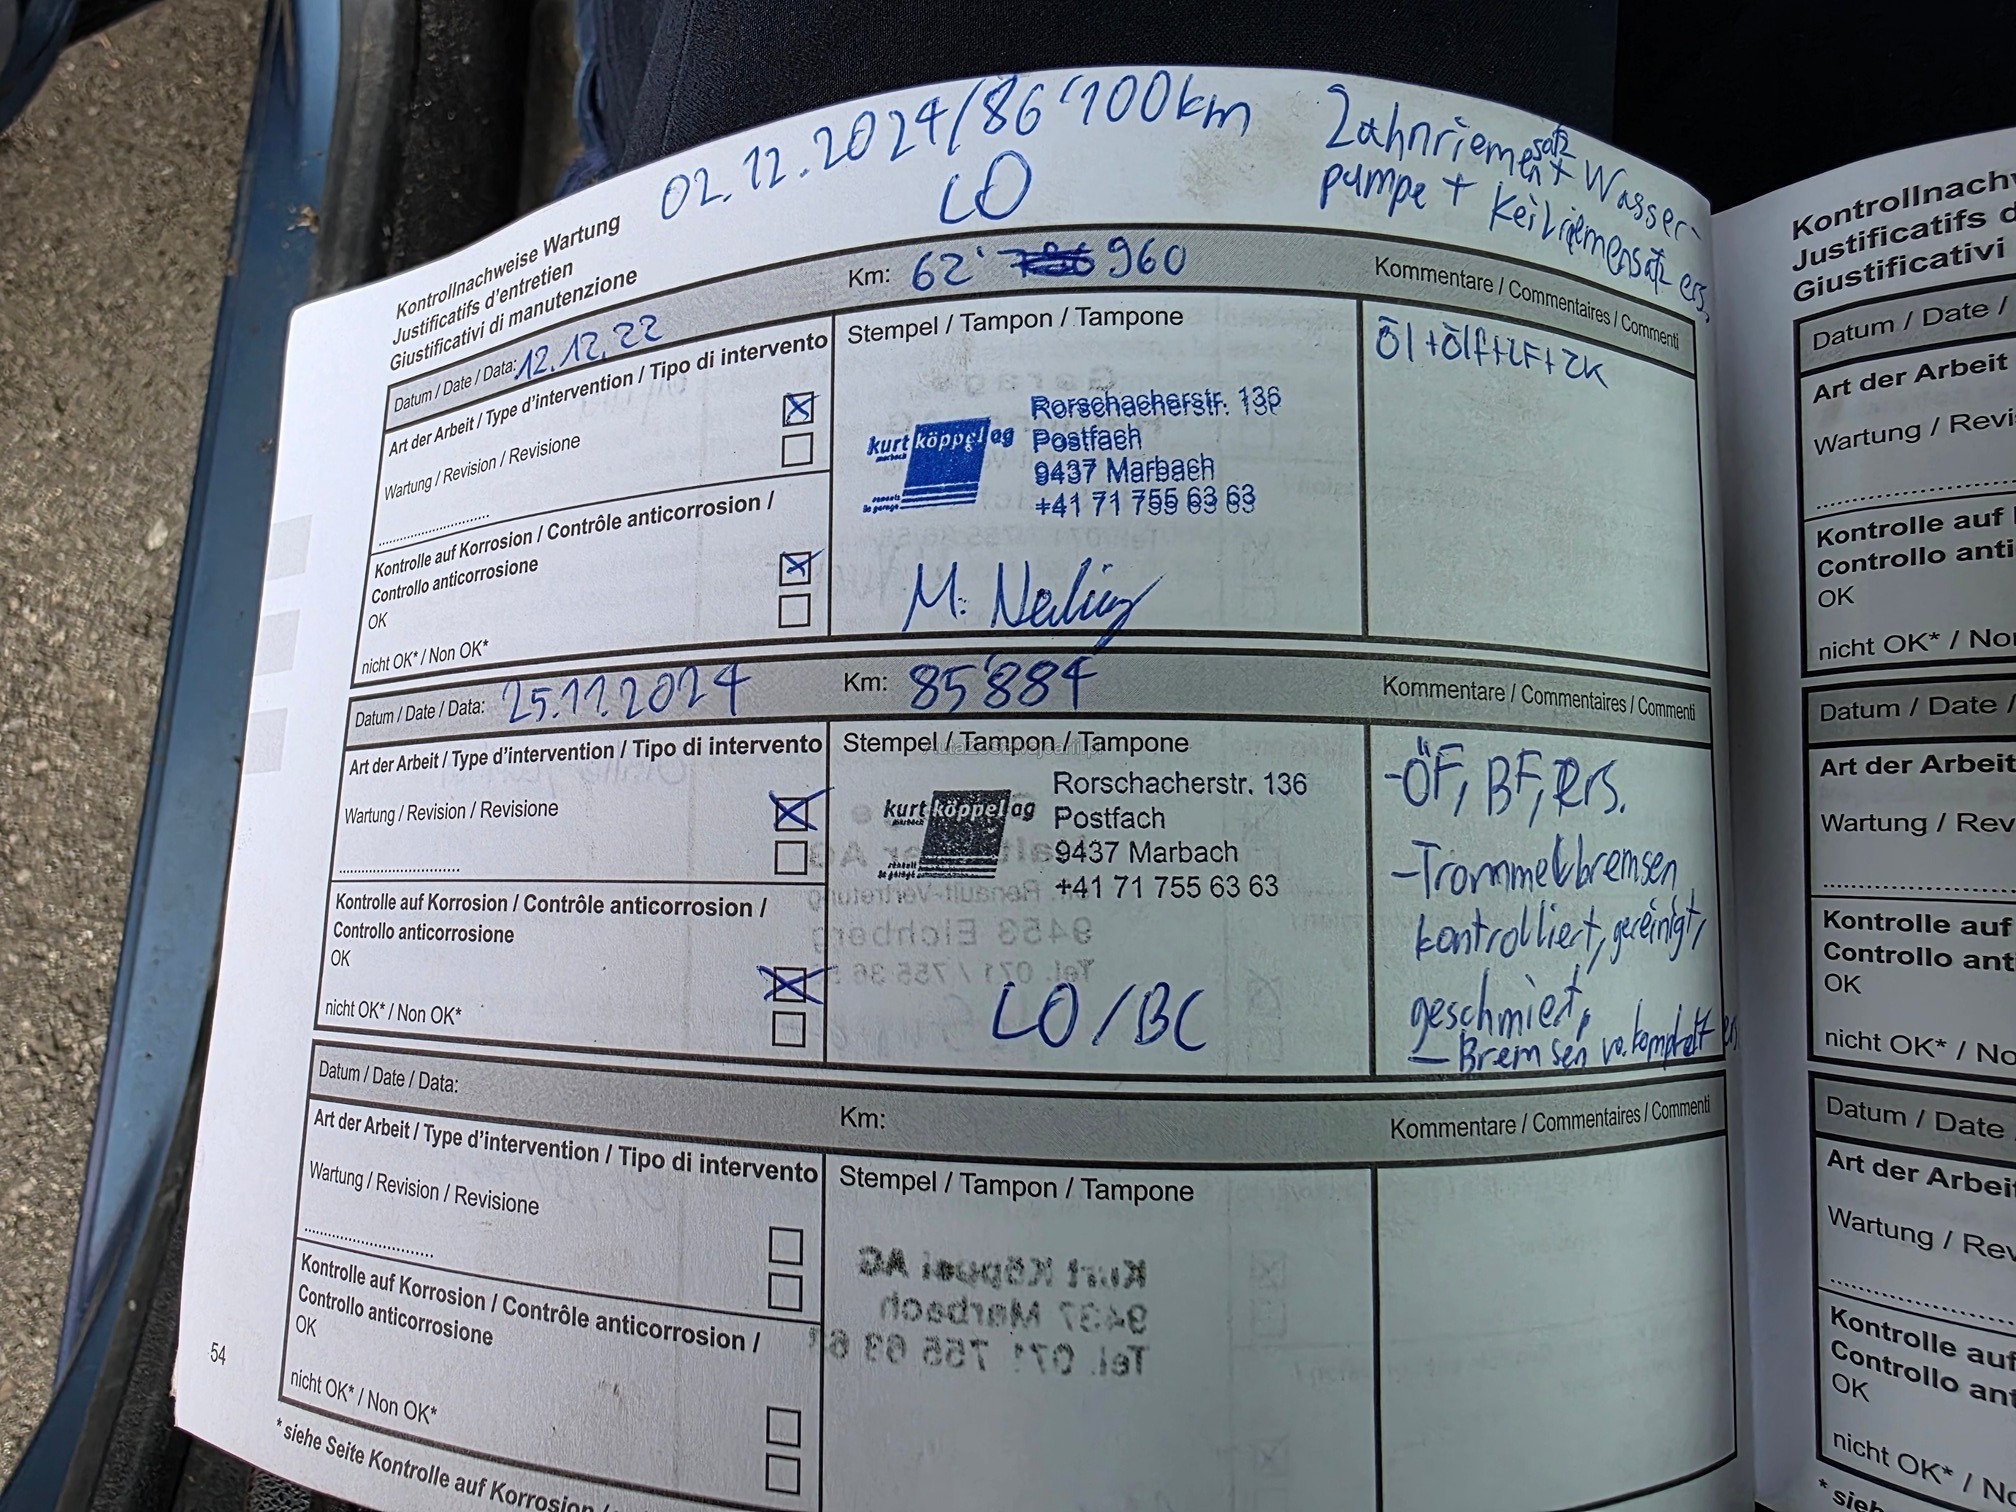 02.12.2024/86'100km
LO
Zahnriemensatz + Wasser-
pumpe + Keilriemensatz ers.
Kontrollnachweise Wartung
Justificatifs d'entretien
Giustificativi di manutenzione
Datum / Date / Data: 12.12.22
Km: 62' 960
Kommentare / Commentaires / Commenti
Art der Arbeit / Type d'intervention / Tipo di intervento
Wartung / Revision / Revisione
Kontrolle auf Korrosion / Contrôle anticorrosion /
Controllo anticorrosione
OK
nicht OK* / Non OK*
Stempel / Tampon / Tampone
kurt köppel ag
marbach
Rorschacherstr. 136
Postfach
9437 Marbach
+41 71 755 63 63
Öl+Ölf+LF+ZK
Datum / Date / Data: 25.11.2024
Km: 85'884
Kommentare / Commentaires / Commenti
Art der Arbeit / Type d'intervention / Tipo di intervento
Wartung / Revision / Revisione
Kontrolle auf Korrosion / Contrôle anticorrosion /
Controllo anticorrosione
OK
nicht OK* / Non OK*
Stempel / Tampon / Tampone
kurt köppel ag
marbach
Rorschacherstr. 136
Postfach
9437 Marbach
+41 71 755 63 63
LO/BC
-ÖF, BF, ers.
-Trommelbremsen
kontrolliert, gereinigt,
geschmiert,
- Bremsen vo. komplett ers
Datum / Date / Data:
Km:
Kommentare / Commentaires / Commenti
Art der Arbeit / Type d'intervention / Tipo di intervento
Wartung / Revision / Revisione
Kontrolle auf Korrosion / Contrôle anticorrosion /
Controllo anticorrosione
OK
nicht OK* / Non OK*
Stempel / Tampon / Tampone
54
* siehe Seite Kontrolle auf Korrosion /
Justificatifs
Giustificativi
Datum / Date /
Art der Arbeit
Wartung /
Kontrolle auf
Controllo
OK
nicht OK* /
Datum / Date /
Art der Arbeit
Wartung /
Kontrolle auf
Controllo
OK
nicht OK* /
Datum / Date
Art der
Wartung /
Kontrolle auf
Controllo
OK
nicht OK* /